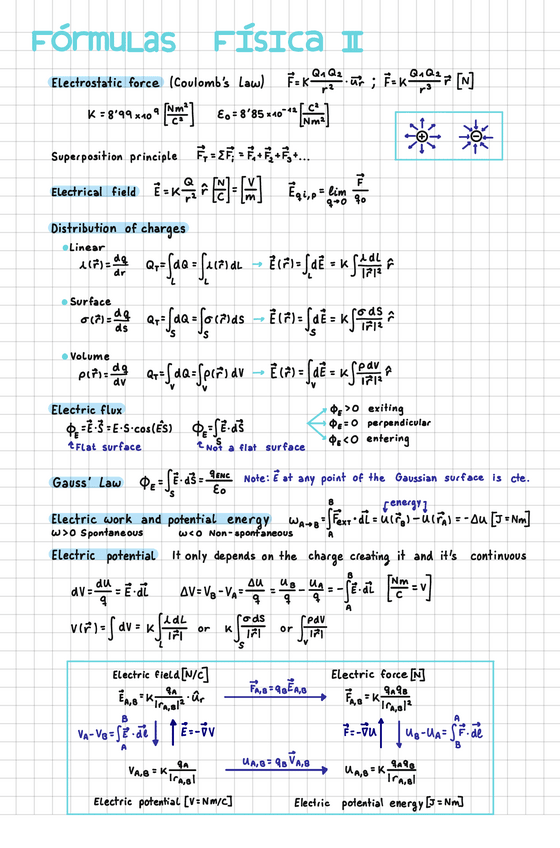 FÓRMULAS FÍSICA II
Electrostatic force (Coulomb's Law) F⃗=K Q₁Q₂/r² · u⃗r ; F⃗=K Q₁Q₂/r³ r⃗ [N]
K = 8'99 x10⁹ [Nm²/C²] ε₀=8'85 x10⁻¹² [C²/Nm²]
+ −
Superposition principle F⃗_T = ΣF⃗ᵢ = F⃗₁+F⃗₂+F⃗₃+...
Electrical field E⃗=K Q/r² r̂ [N/C]=[V/m] E⃗qi,p = lim q→0 F⃗/q₀
Distribution of charges
• Linear
λ(r⃗)=dq/dr Q_T=∫_L dQ=∫_L λ(r⃗)dL → E⃗(r⃗)=∫_L dE⃗ = K∫ λdL/|r⃗|² r̂
• Surface
σ(r⃗)=dq/ds Q_T=∫_S dQ=∫_S σ(r⃗)dS → E⃗(r⃗)=∫_S dE⃗ = K∫ σdS/|r⃗|² r̂
• Volume
ρ(r⃗)=dq/dV Q_T=∫_V dQ=∫_V ρ(r⃗)dV → E⃗(r⃗)=∫_V dE⃗ = K∫ ρdV/|r⃗|² r̂
Electric flux
ɸ_E=E⃗·S⃗=E·S·cos(E⃗S⃗) ɸ_E=∫_S E⃗·dS⃗
↑Flat surface ↑Not a flat surface
ɸ_E>0 exiting
ɸ_E=0 perpendicular
ɸ_E<0 entering
Gauss' Law ɸ_E=∫_S E⃗·dS⃗= q_ENC/ε₀ Note: E⃗ at any point of the Gaussian surface is cte.
Electric work and potential energy ω_A→B=∫_A^B F⃗ext·dL⃗ = U(r⃗_B)−U(r⃗_A) = −ΔU [J=Nm]
energy
ω>0 Spontaneous ω<0 Non-spontaneous
Electric potential It only depends on the charge creating it and it's continuous
dV= dU/q = E⃗·dL⃗ ΔV=V_B−V_A= ΔU/q = U_B/q − U_A/q = −∫_A^B E⃗·dL⃗ [Nm/C = V]
V(r⃗)=∫dV = K∫_L λdL/|r⃗| or K∫_S σdS/|r⃗| or ∫_V ρdV/|r⃗|
Electric field [N/C] Electric force [N]
E⃗_A,B = K q_A/|r_A,B|² · û_r F⃗_A,B=q_B E⃗_A,B F⃗_A,B = K q_A q_B/|r_A,B|²
V_A−V_B=∫_A^B E⃗·dℓ⃗ E⃗=−∇⃗V F⃗=−∇⃗U U_B−U_A=∫_B^A F⃗·dℓ⃗
V_A,B = K q_A/|r_A,B| U_A,B=q_B V⃗_A,B U_A,B = K q_A q_B/|r_A,B|
Electric potential [V=Nm/C] Electric potential energy [J=Nm]